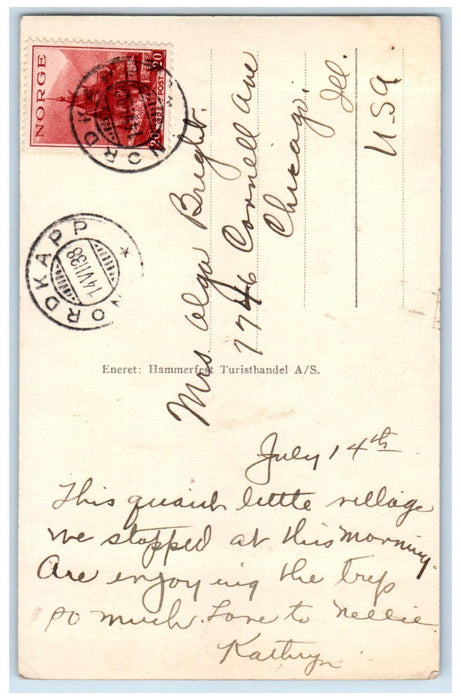 NORGE
20 20
NORDKAPP
NORDKAPP
14 VII 38
Mrs Olga Bright.
7746 Cornell Ave
Chicago.
Ill.
USA
Eneret: Hammerfest Turisthandel A/S.
July 14th
This quaint little village
we stopped at this morning.
Are enjoying the trip
so much. Love to Nellie.
Kathryn